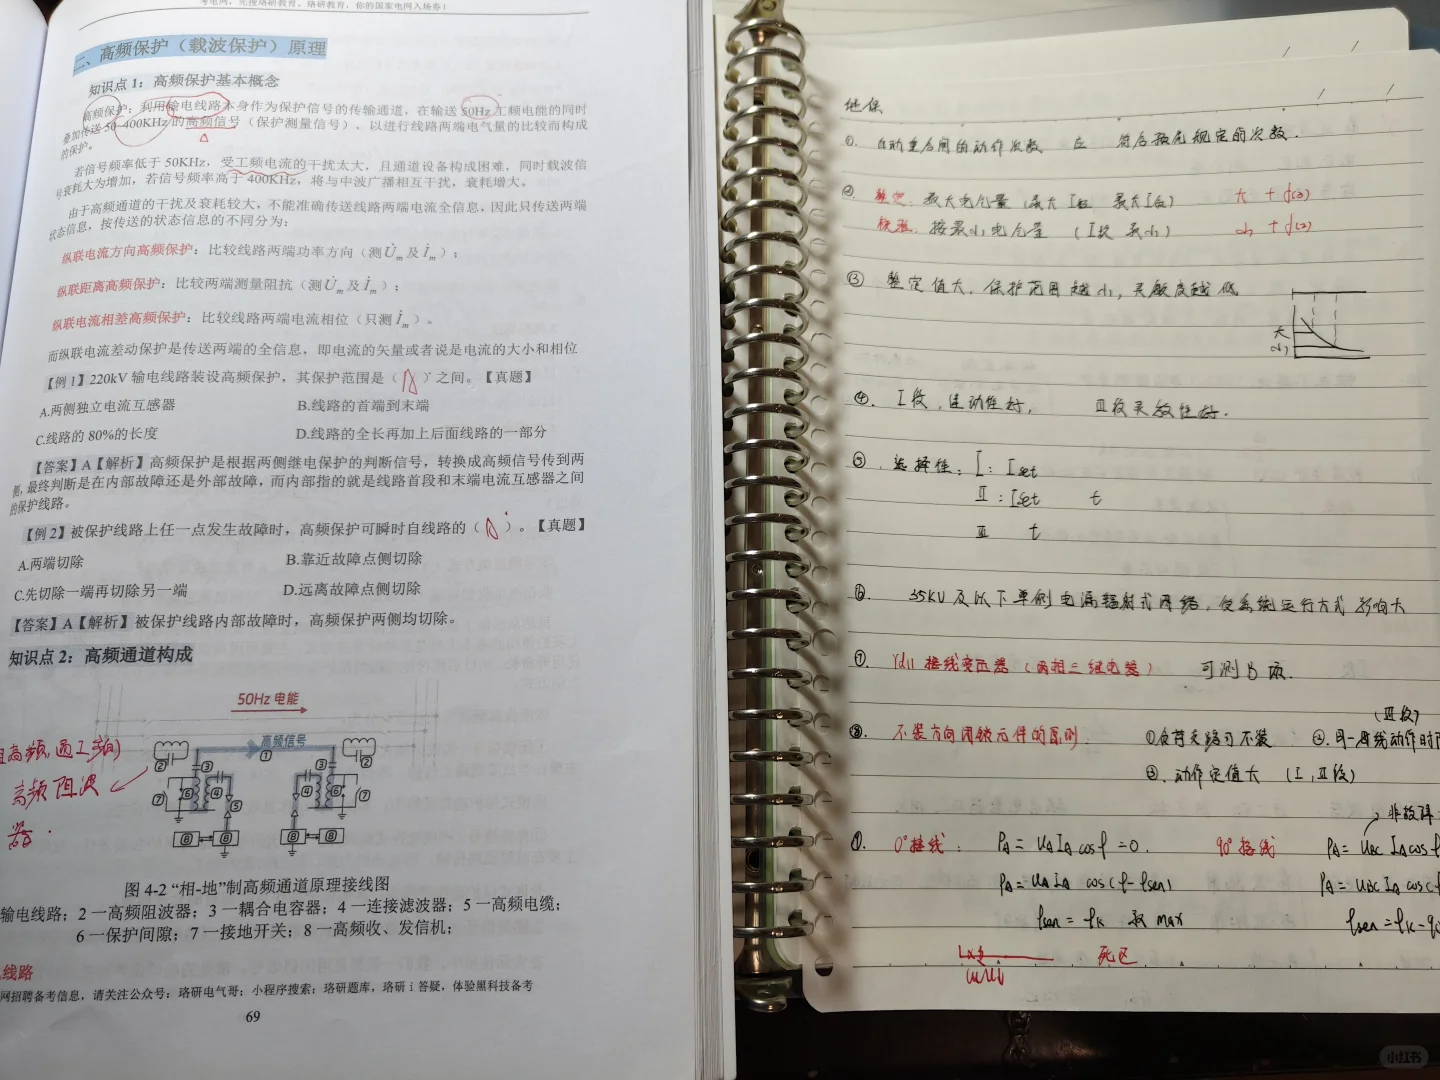 考电网，先搜珞研教育，珞研教育，你的国家电网入场券！
二、高频保护（载波保护）原理
知识点 1：高频保护基本概念
高频保护：利用输电线路本身作为保护信号的传输通道，在输送 50Hz 工频电能的同时
叠加传送 50–400KHz 的高频信号（保护测量信号），以进行线路两端电气量的比较而构成
的保护。
若信号频率低于 50KHz，受工频电流的干扰太大，且通道设备构成困难，同时载波信
号衰耗大为增加，若信号频率高于 400KHz，将与中波广播相互干扰，衰耗增大。
由于高频通道的干扰及衰耗较大，不能准确传送线路两端电流全信息，因此只传送两端
状态信息，按传送的状态信息的不同分为：
纵联电流方向高频保护：比较线路两端功率方向（测U̇m及İm）；
纵联距离高频保护：比较两端测量阻抗（测U̇m及İm）；
纵联电流相差高频保护：比较线路两端电流相位（只测İm）。
而纵联电流差动保护是传送两端的全信息，即电流的矢量或者说是电流的大小和相位
【例 1】220kV 输电线路装设高频保护，其保护范围是（ A ）之间。【真题】
A.两侧独立电流互感器 B.线路的首端到末端
C.线路的 80%的长度 D.线路的全长再加上后面线路的一部分
【答案】A【解析】高频保护是根据两侧继电保护的判断信号，转换成高频信号传到两
侧，最终判断是在内部故障还是外部故障，而内部指的就是线路首段和末端电流互感器之间
的保护线路。
【例 2】被保护线路上任一点发生故障时，高频保护可瞬时自线路的（ A ）。【真题】
A.两端切除 B.靠近故障点侧切除
C.先切除一端再切除另一端 D.远离故障点侧切除
【答案】A【解析】被保护线路内部故障时，高频保护两侧均切除。
知识点 2：高频通道构成
50Hz 电能
高频信号
阻高频,通工频)
高频阻波
器.
图 4-2 “相-地”制高频通道原理接线图
输电线路；2 一高频阻波器；3 一耦合电容器；4 一连接滤波器；5 一高频电缆；
6 一保护间隙；7 一接地开关；8 一高频收、发信机；
线路
网招聘备考信息，请关注公众号：珞研电气哥；小程序搜索：珞研题库，珞研 i 答疑，体验黑科技备考
69
继保
①. 自动重合闸的动作次数 应 符合预先规定的次数.
② 整定. 最大电气量 (最大 I 最大 I) 大 + f(3)
校验. 按最小电气量 (I 最小) 小 + f(2)
③ 整定值大, 保护范围越小, 灵敏度越低
大
小
④. I段, 速动性好, III段灵敏性好.
⑤. 选择性: I: Iset
II: Iset t
III t
⑥. 35kV及以下单侧电源辐射式网络, 受系统运行方式影响大
⑦. Yd11接线变压器(两相三继电器) 可测B项.
(III段)
⑧. 不装方向闭锁元件的原则 ①负荷支路可不装 ②.同一母线动作时
③. 动作定值大 (I, II段)
非故障
⑨. 0°接线: PA = UA IA cosφ = 0. 90°接线 PA = UBC IA cosφ
PA = UA IA cos(φ-φsen) PA = UBC IA cos(φ
φsen = φk 取 max φsen = φk - 90
死区
小红书